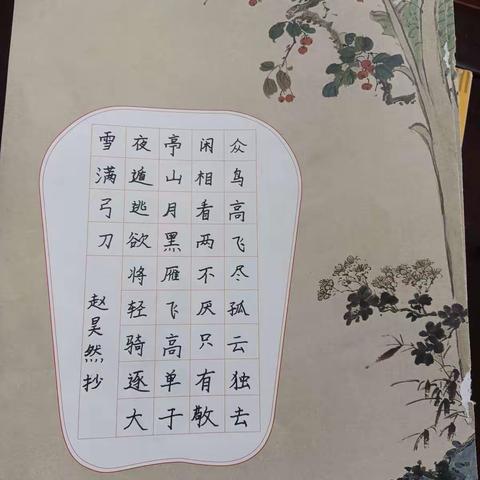 众鸟高飞尽孤云独去
闲相看两不厌只有敬
亭山月黑雁飞高单于
夜遁逃欲将轻骑逐大
雪满弓刀
赵昊然抄